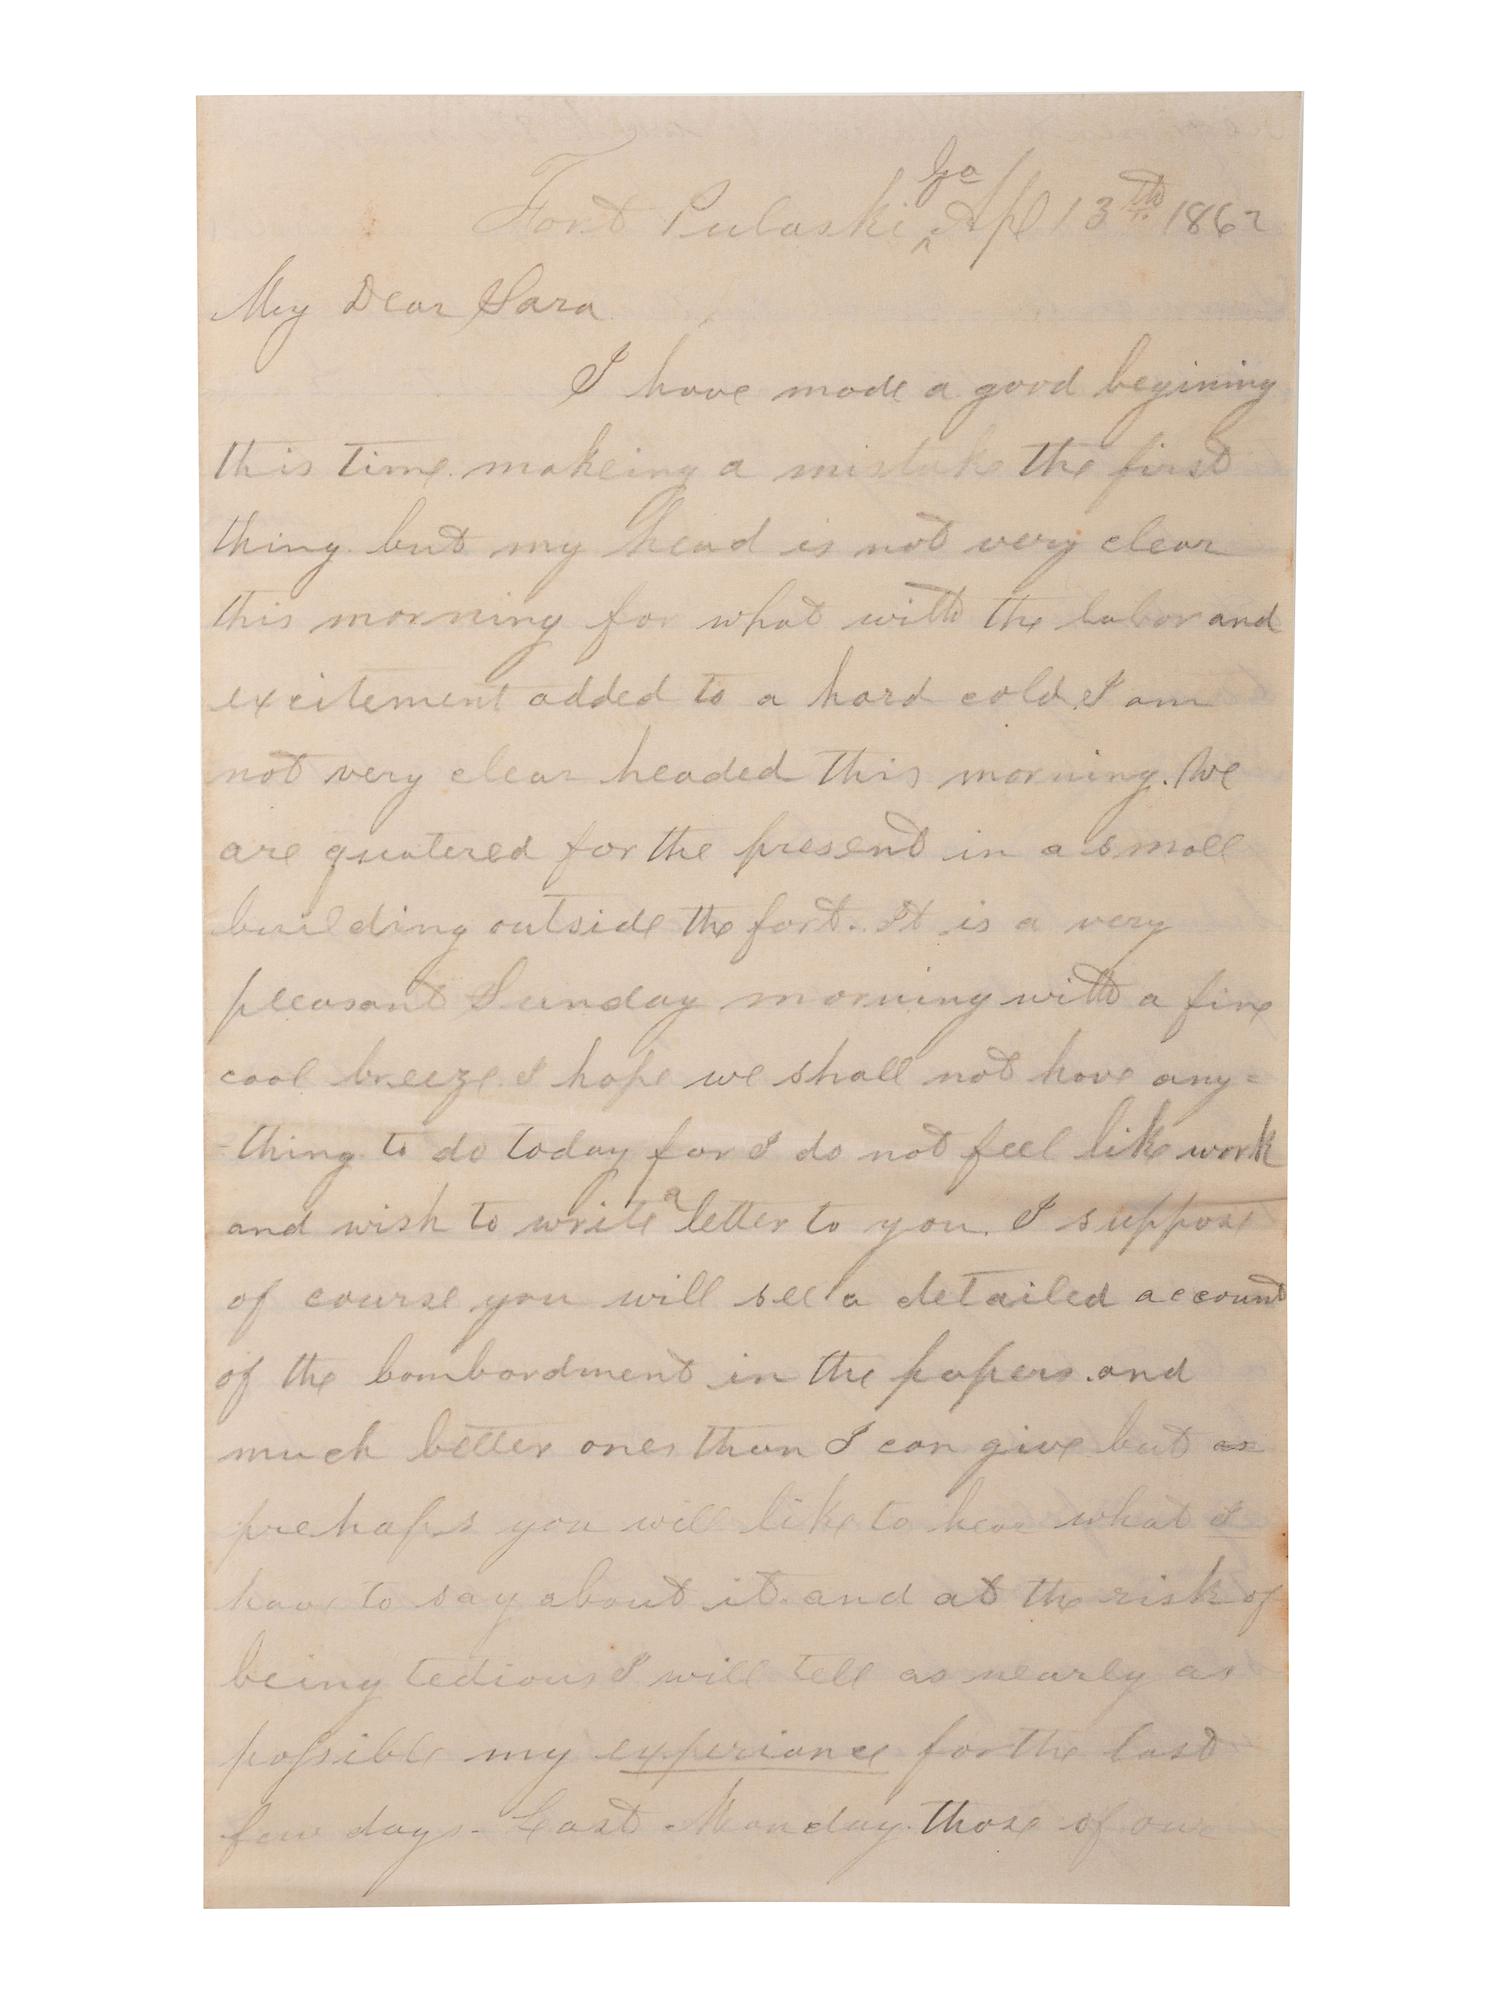 Fort Pulaski ^Ga Apl 13th 1862
My Dear Sara
I have made a good begining
this time. makeing a mistake the first
thing. but my head is not very clear
this morning for what with the labor and
excitement added to a hard cold I am
not very clear headed this morning. We
are quatered for the present in a small
building outside the fort. It is a very
pleasant Sunday morning with a fine
cool breeze. I hope we shall not have any=
=thing to do today for I do not feel like work
and wish to write a letter to you. I suppose
of course you will see a detailed account
of the bombardment in the papers. and
much better ones than I can give but as
prehaps you will like to hear what I
have to say about it. and at the risk of
being tedious I will tell as nearly as
possible my experiance for the last
few days - Last Monday. those of our